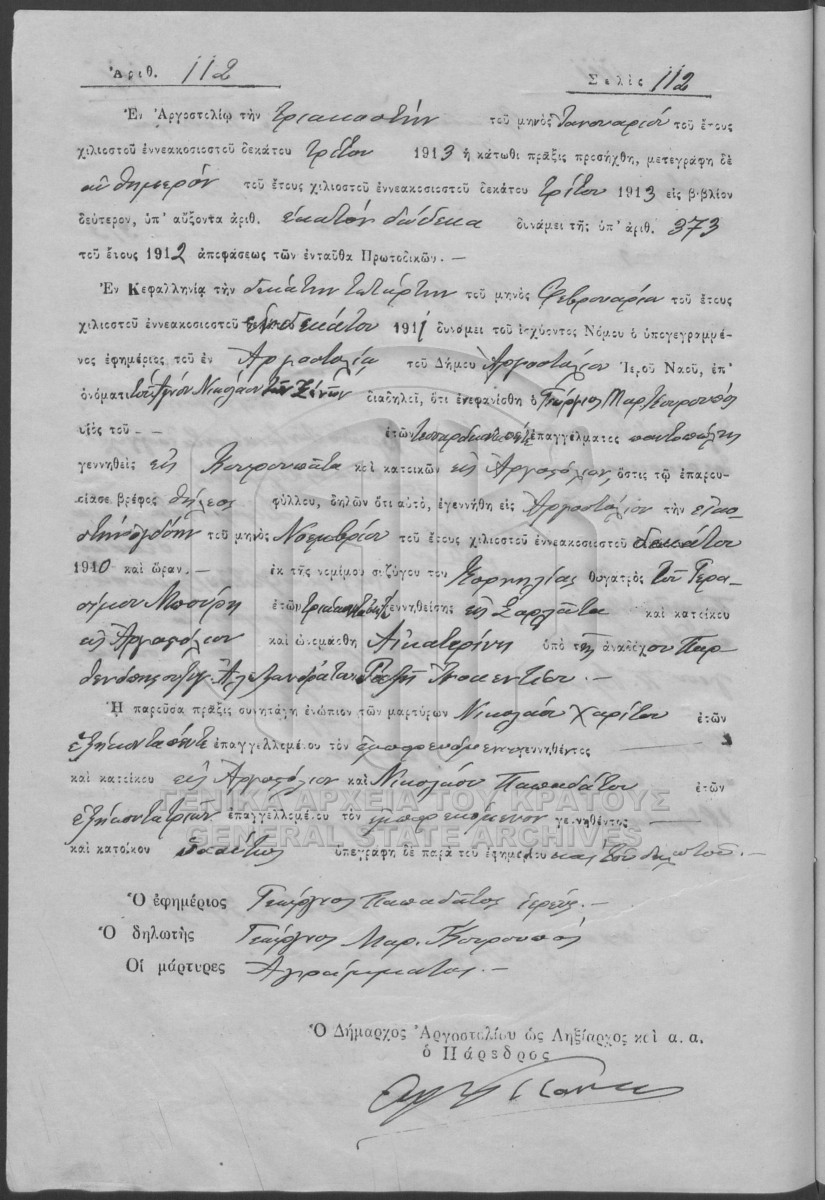 Ἀριθ. 112 Σελὶς 112
Ἐν Ἀργοστολίῳ τὴν τριακοστήν τοῦ μηνὸς Ἰανουαρίου τοῦ ἔτους
χιλιοστοῦ ἐννεακοσιοστοῦ δεκάτου τρίτου 1913 ἡ κάτωθι πρᾶξις προσήχθη, μετεγράφη δὲ
αὐθημερόν τοῦ ἔτους χιλιοστοῦ ἐννεακοσιοστοῦ δεκάτου τρίτου 1913 εἰς βιβλίον
δεύτερον, ὑπ' αὔξοντα ἀριθ. ἑκατόν δώδεκα δυνάμει τῆς ὑπ' ἀριθ. 373
τοῦ ἔτους 1912 ἀποφάσεως τῶν ἐνταῦθα Πρωτοδικῶν. —
Ἐν Κεφαλληνίᾳ τὴν δεκάτην τετάρτην τοῦ μηνὸς Φεβρουαρίου τοῦ ἔτους
χιλιοστοῦ ἐννεακοσιοστοῦ ἑνδεκάτου 1911 δυνάμει τοῦ ἰσχύοντος Νόμου ὁ ὑπογεγραμμέ-
νος ἐφημέριος τοῦ ἐν Ἀργοστολίῳ τοῦ Δήμου Ἀργοστολίου Ἱεροῦ Ναοῦ, ἐπ'
ὀνόματι τοῦ Ἁγίου Νικολάου τῶν Ξένων διαδηλοῖ, ὅτι ἐνεφανίσθη ὁ Γεώργιος Μαρ
υἱὸς τοῦ — ἐτῶν ἐπαγγέλματος παντοπώλης
γεννηθεὶς εἰς καὶ κατοικῶν εἰς Ἀργοστόλιον, ὅστις τῷ ἐπαρου-
σίασε βρέφος θήλεος φύλλου, δηλῶν ὅτι αὐτό, ἐγεννήθη εἰς Ἀργοστόλιον τὴν εἰκο-
στὴν ὀγδόην τοῦ μηνὸς Νοεμβρίου τοῦ ἔτους χιλιοστοῦ ἐννεακοσιοστοῦ δεκάτου
1910 καὶ ὥραν. — ἐκ τῆς νομίμου συζύγου του Κορνηλίας θυγατρὸς τοῦ Γερα-
σίμου Μπούρη ἐτῶν γεννηθείσης εἰς Σαρλάτα καὶ κατοίκου
εἰς Ἀργοστόλιον καὶ ὠνομάσθη Αἰκατερίνη ὑπὸ τῆς ἀναδόχου Παρ
θενόπης συζ. Ἀλεξανδράτου Ἰνοκεντίου. —
Ἡ παροῦσα πρᾶξις συνετάγη ἐνώπιον τῶν μαρτύρων Νικολάου Χαρίτου ἐτῶν
ἑξήκοντα πέντε ἐπαγγελλομένου τὸν ἐμπορευόμενον γεννηθέντος —
καὶ κατοίκου εἰς Ἀργοστόλιον καὶ Νικολάου Παπαδάτου ἐτῶν
ἑξήκοντα τριῶν ἐπαγγελλομένου τὸν γεννηθέντος —
καὶ κατοίκου ὑπεγράφη δὲ παρὰ τοῦ ἐφημερίου καὶ τοῦ δηλωτοῦ. —
Ὁ ἐφημέριος Γεώργιος Παπαδάτος ἱερεύς. —
Ὁ δηλωτὴς Γεώργιος Μαρ.
Οἱ μάρτυρες Ἀγράμματοι. —
Ὁ Δήμαρχος Ἀργοστολίου ὡς Ληξίαρχος καὶ α. α.
ὁ Πάρεδρος
ΓΕΝΙΚΑ ΑΡΧΕΙΑ ΤΟΥ ΚΡΑΤΟΥΣ
GENERAL STATE ARCHIVES